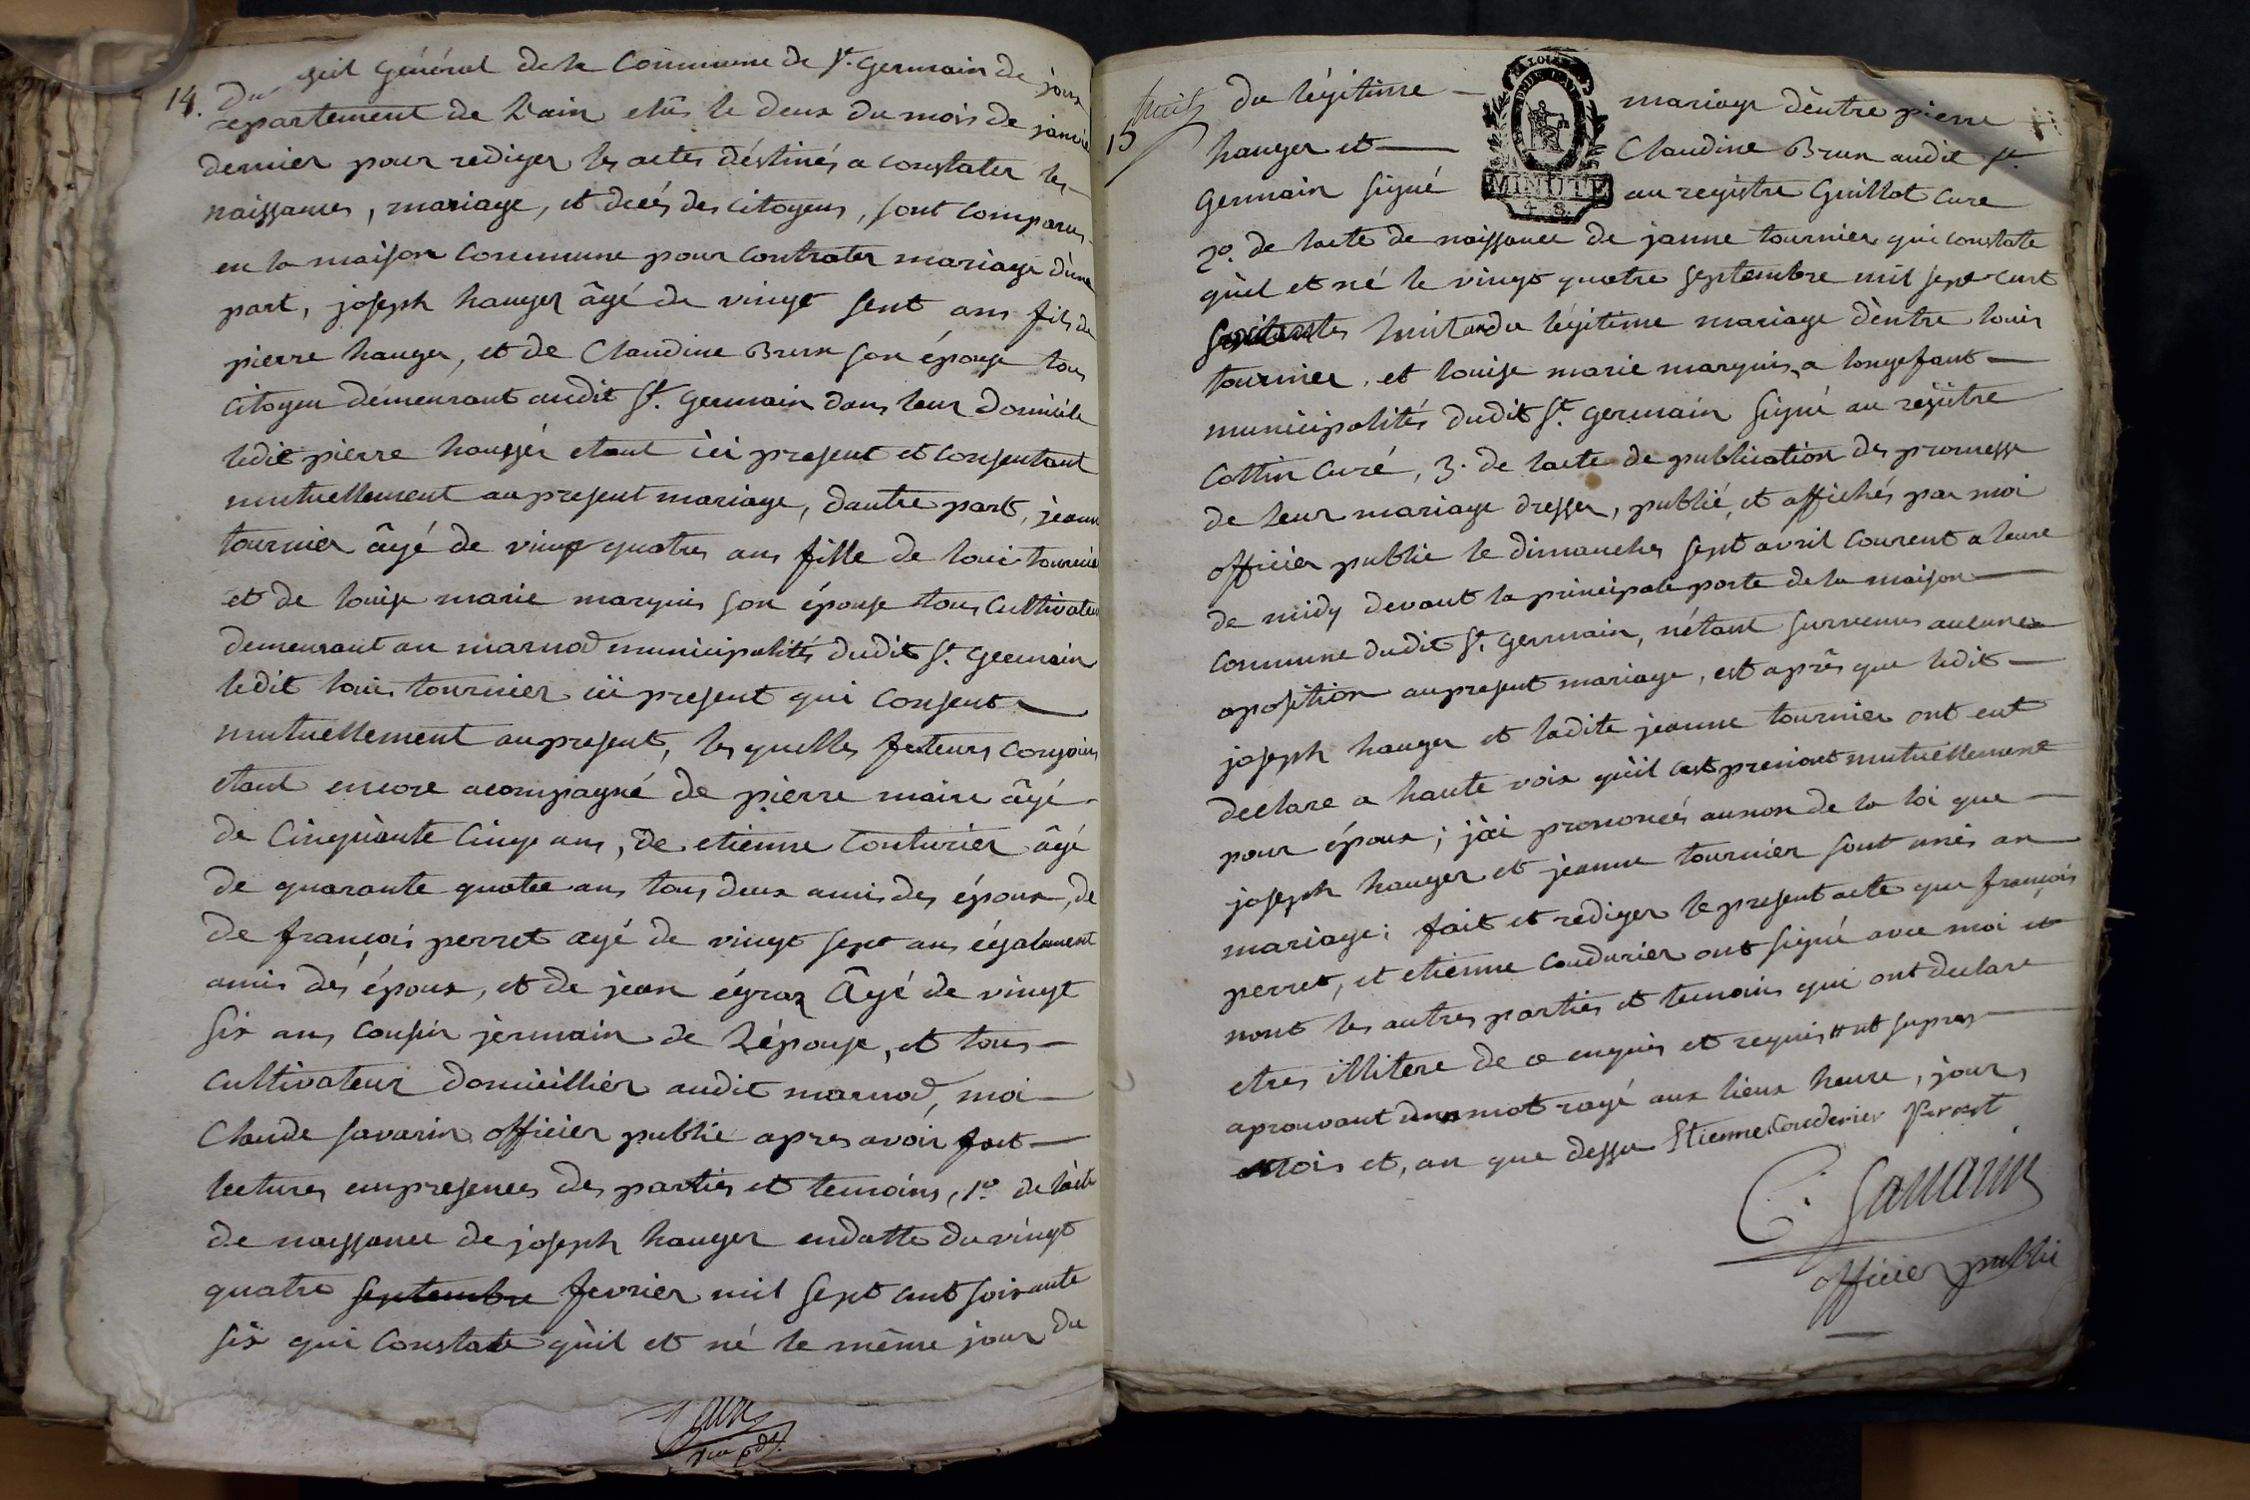 14.
du seil général de la Commune de St. germain de joux
departement de Lain elûs le deux du mois de janvier
dernier pour rediger les actes déstinés a constater les
naissances, mariage, et decés des citoyens, sont comparus
en la maison commune pour contrater mariage d'une
part, joseph hauger âgé de vingt sent ans fils de
pierre hauger, et de Claudine Brun son épouse tous
citoyen demeurant audit St. germain dans leur domicile
ledit pierre hauger etant ici present et consentant
mutuellement au present mariage, dautre part, jeanne
tournier âgé de vingt quatres ans fille de loui tournier
et de louise marie marquis son épouse tous cultivateur
demeurant au marnod municipalités dudit St. germain
ledit louis tournier ici present qui consent
mutuellement au present, les quelles futeurs conjoins
etant encore acompagné de pierre maire âgé
de Cinquante Cinq ans, de etienne Couturier âgé
de quarante quatre ans tous deux amis des époux, de
de françois perret agé de vingt sept ans également
amis dés époux, et de jean égraz Âgé de vingt
six ans cousin jermain de Lépouse, et tous
cultivateur domicillier audit marnod, moi
Claude savarin officier public apres avoir fait
lectures empresences des parties et temoins, 1o. de lacte
de naissance de joseph hauger endatte du vingt
quatre septembre fevrier mil sept cent soixante
six qui constate quil et né le même jour du
15
du légitime mariage d'entre pierre
hauger et Claudine Brun audit St.
germain signé au registre Guillot cure
2o. de lacte de naissance de janne tournier qui constate
qùil et né le vingt quatre septembre mil sept cent
soixante huit du légitime mariage d'entre louis
tournier, et louise marie marquis, a longefant
municipalités dudit St. germain signé au regître
Cottin Curé, 3. de lacte de publication des promesse
de leur mariage dresser, publié, et affichés par moi
officier public le dimanche sept avril courent a leure
de midy devant la principale porte de la maison
commune dudit St. germain, nétant survenus aucunes
oposition au present mariage, est aprês que ledit
joseph hauger et ladite jeanne tournier ont eut
declare a haute voix qùil cest prenoit mutuellement
pour époux; j'ai prononcés aunon de la loi que
joseph hauger et jeanne tournier sont unis an
mariage; fait et rediger le present acte que françois
perret, et etienne Coudurier ont signé avec moi et
nont les autres parties et temoins qui ont declare
etres illitere de ce enquis et requis
aprouvant un mot rayé aux lieux heure, jour,
mois et, an que dessu Etienne Couderier Perret
C. Savarin
officier public
LA LOI
MINUTE